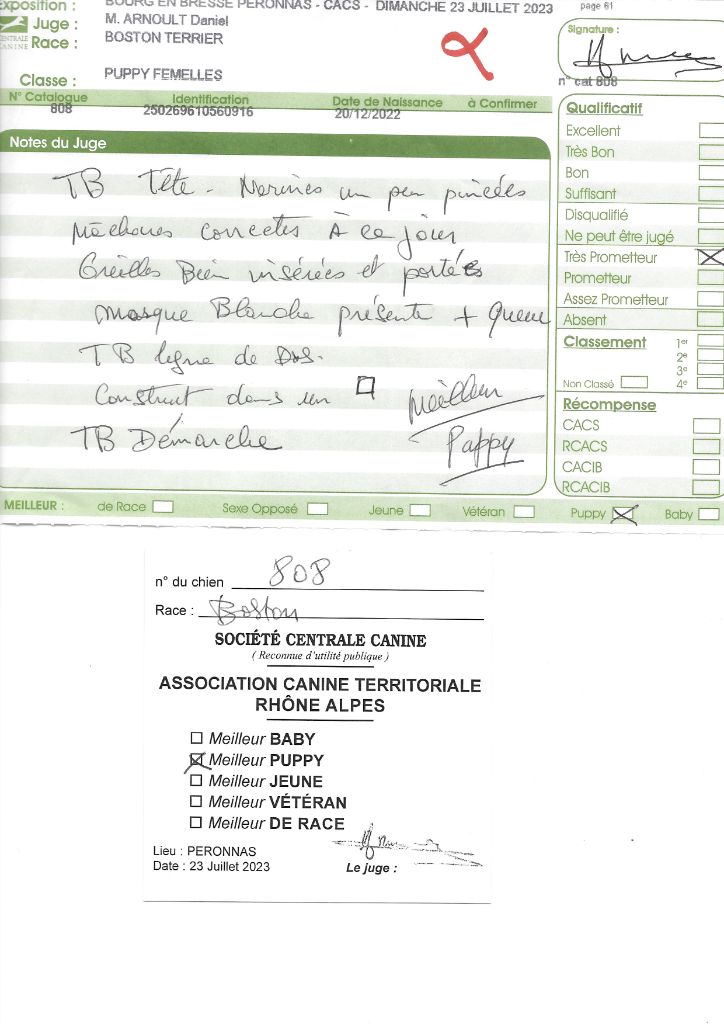 Exposition : BOURG EN BRESSE PERONNAS - CACS - DIMANCHE 23 JUILLET 2023
page 61
Juge : M. ARNOULT Daniel
CENTRALE CANINE
Race : BOSTON TERRIER
Signature :
Classe : PUPPY FEMELLES
n° cat 808
N° Catalogue Identification Date de Naissance à Confirmer
808 250269610560916 20/12/2022
Notes du Juge
TB Tête - Narines un peu pincées
mâchoires correctes À ce jour
Oreilles Bien insérées et portées
masque Blanche présente + queue
TB ligne de Dos.
Construit dans un □
TB Démarche
Meilleur
Puppy
Qualificatif
Excellent
Très Bon
Bon
Suffisant
Disqualifié
Ne peut être jugé
Très Prometteur
Prometteur
Assez Prometteur
Absent
Classement 1er
2e
3e
Non Classé 4e
Récompense
CACS
RCACS
CACIB
RCACIB
MEILLEUR : de Race Sexe Opposé Jeune Vétéran Puppy Baby
n° du chien 808
Race : Boston
SOCIÉTÉ CENTRALE CANINE
( Reconnue d'utilité publique )
ASSOCIATION CANINE TERRITORIALE
RHÔNE ALPES
Meilleur BABY
Meilleur PUPPY
Meilleur JEUNE
Meilleur VÉTÉRAN
Meilleur DE RACE
Lieu : PERONNAS
Date : 23 Juillet 2023
Le juge :